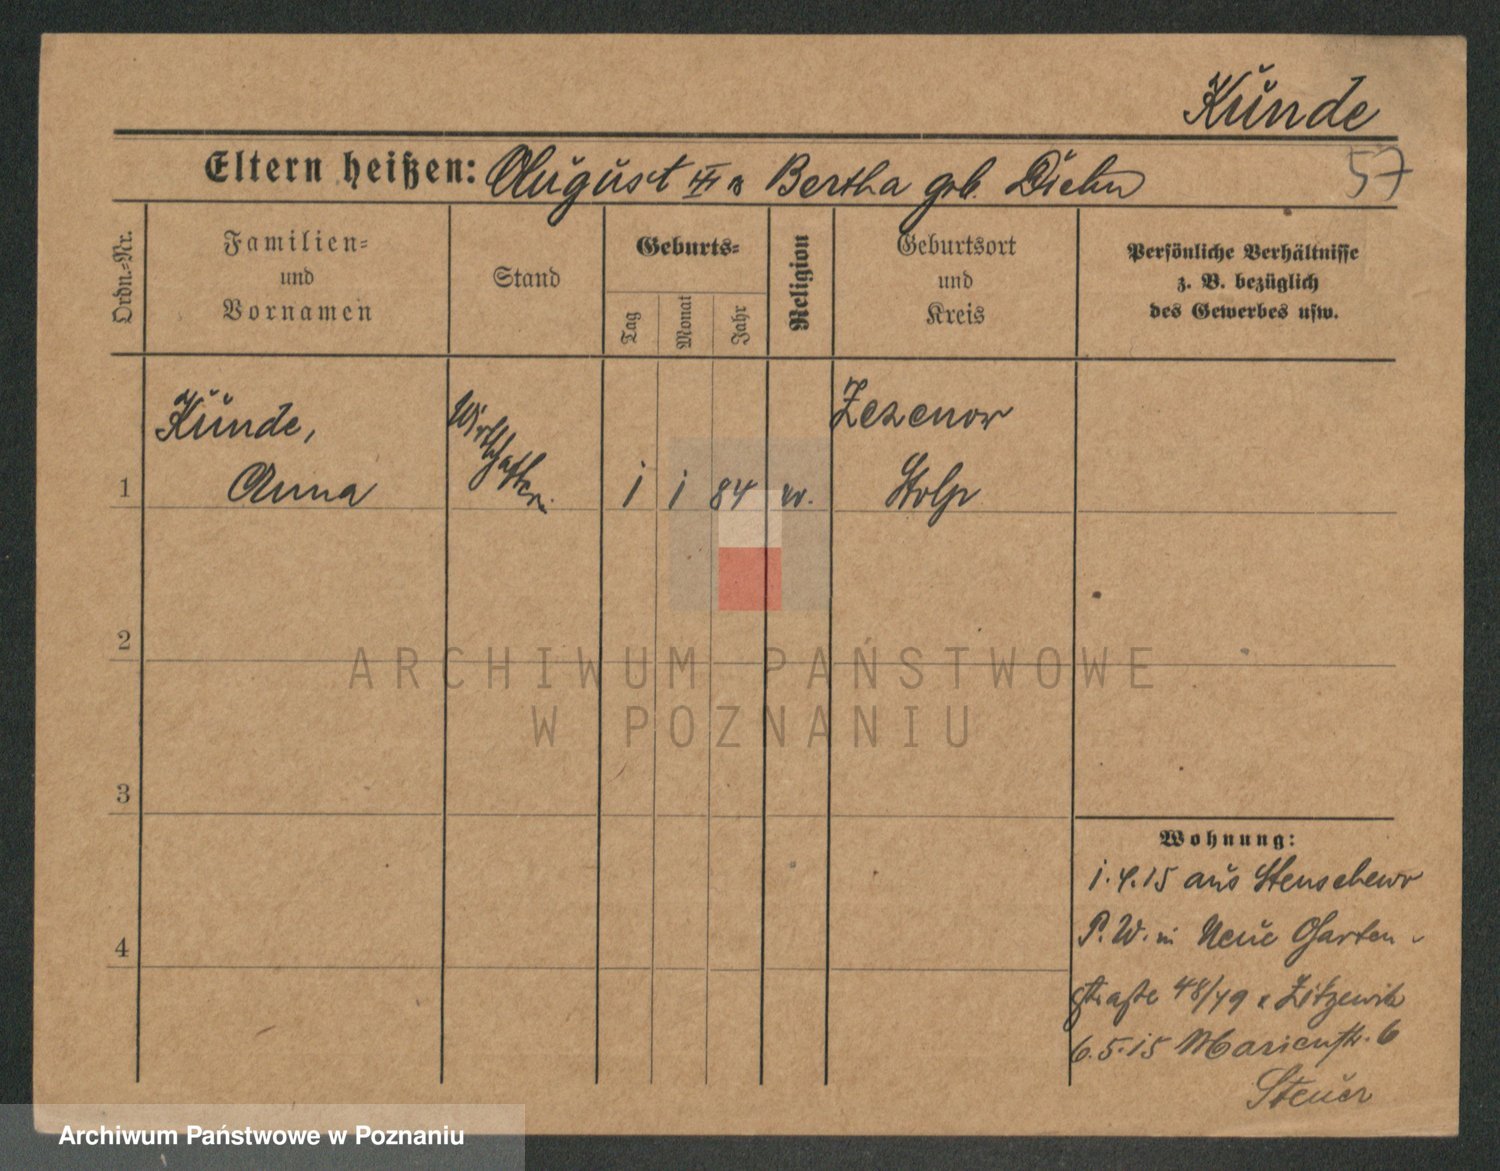 Kunde
57
Eltern heißen: August u Bertha geb. Diehn
Ordn.=Nr.
Familien=
und
Vornamen
Stand
Geburts=
Tag
Monat
Jahr
Religion
Geburtsort
und
Kreis
Persönliche Verhältnisse
z. B. bezüglich
des Gewerbes usw.
1
Kunde,
Anna
Wirtschafterin
1 1 84 ev.
Zezenow
Stolp
2
3
4
ARCHIWUM PAŃSTWOWE
W POZNANIU
Wohnung:
1.4.15 aus Stenschewo
P. W. in Neue Garten-
straße 48/49 b Zitzewitz
6.5.15 Marienstr. 6
Steuer
Archiwum Państwowe w Poznaniu